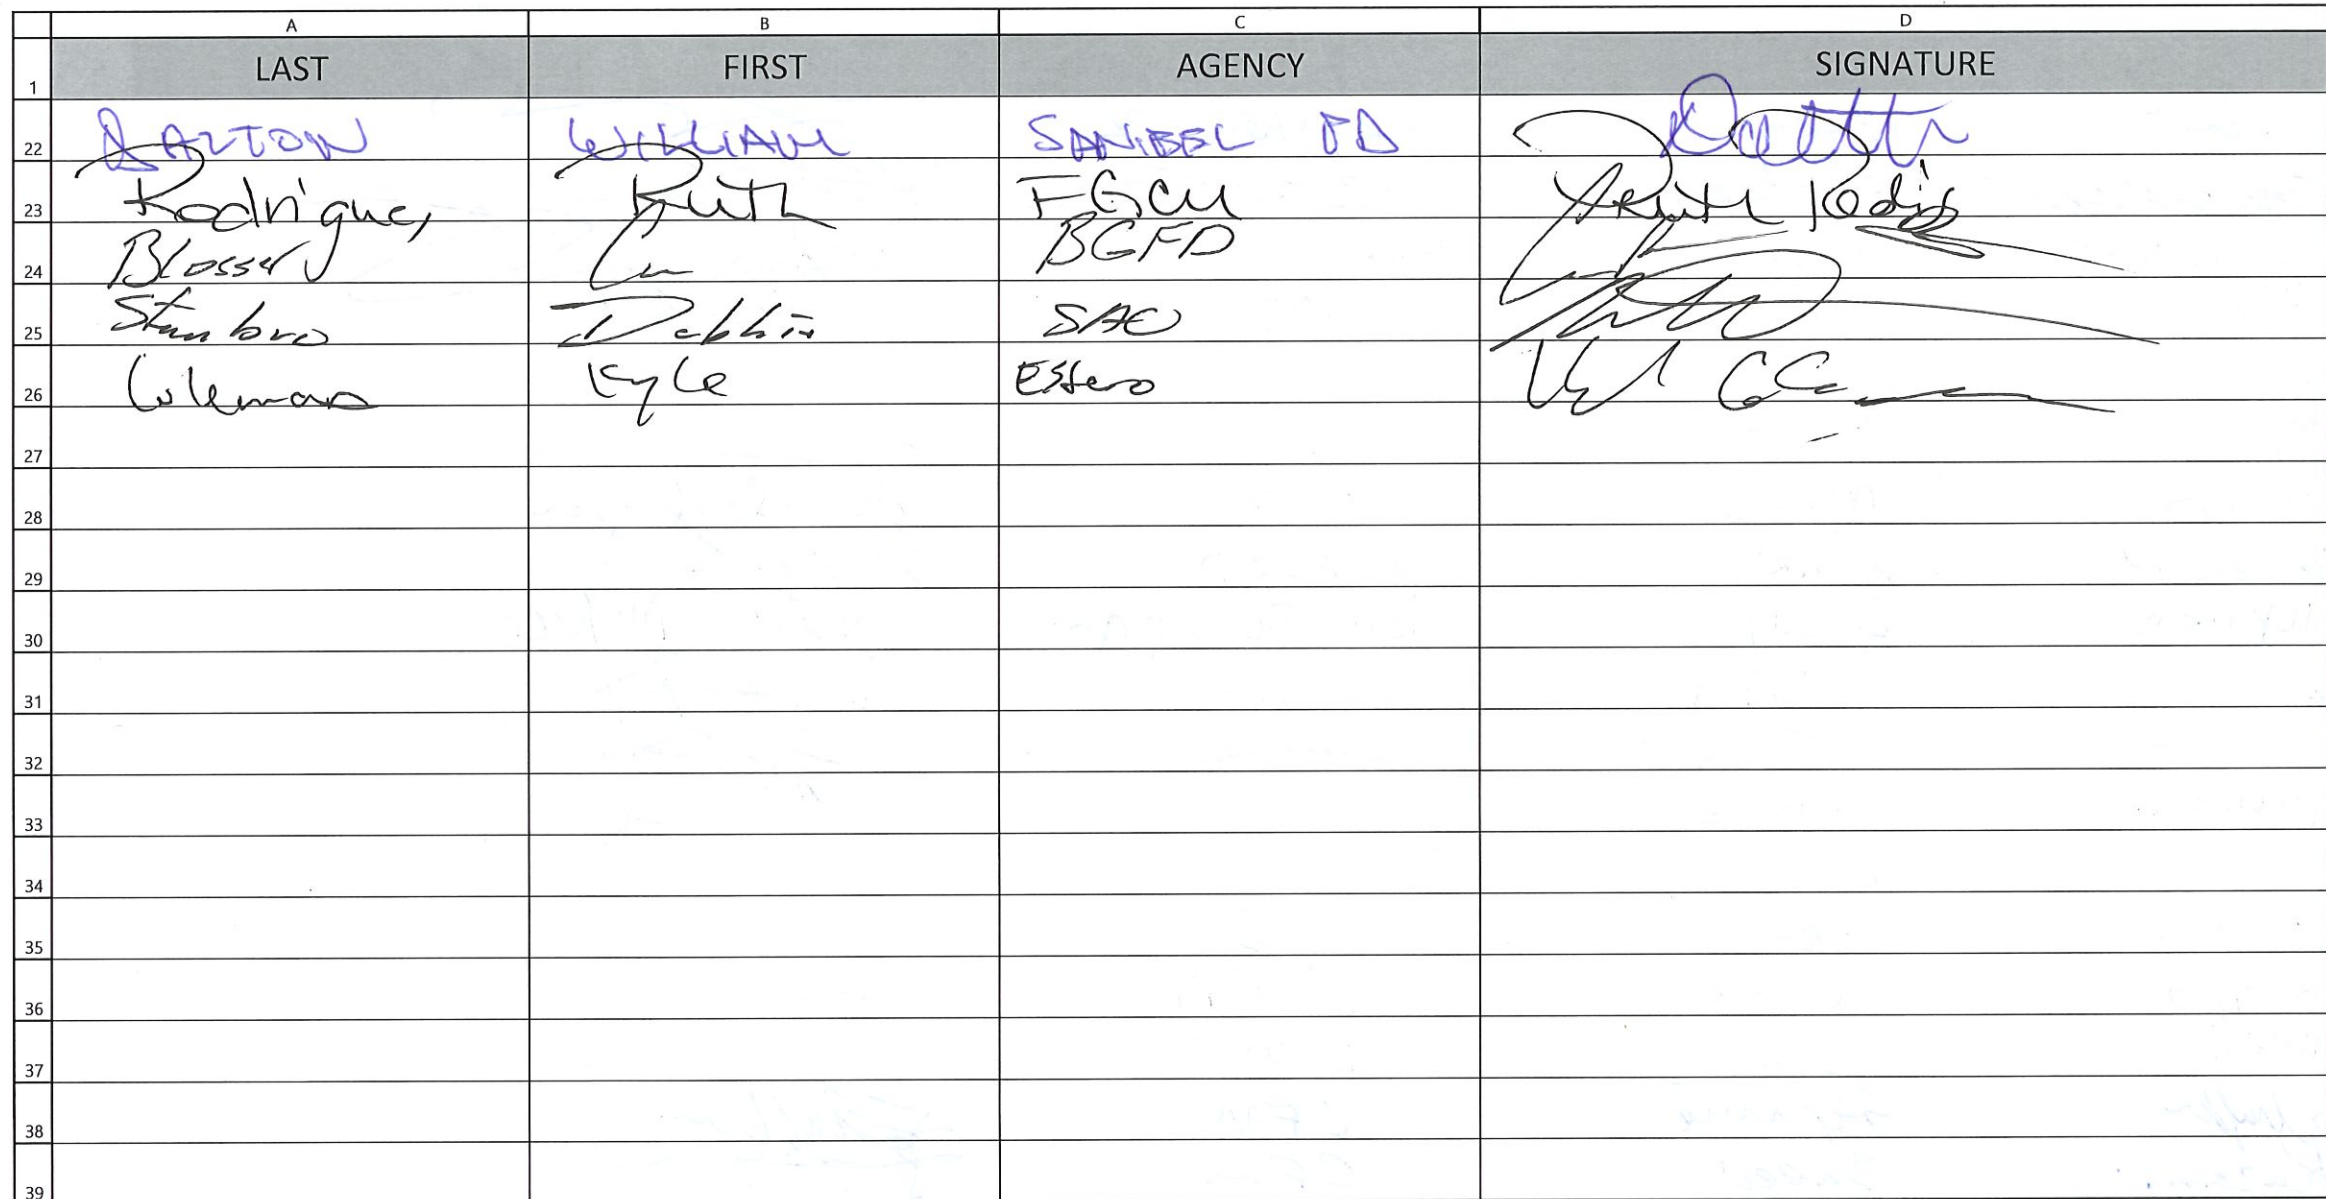 A B C D
1 LAST FIRST AGENCY SIGNATURE
22 DALTON WILLIAM SANIBEL PD
23 Rodriguez Ruth FGCU Ruth
24 Blosser BGFD
25 Stambro Debbie SAO
26 Coleman Kyle Estero
27
28
29
30
31
32
33
34
35
36
37
38
39